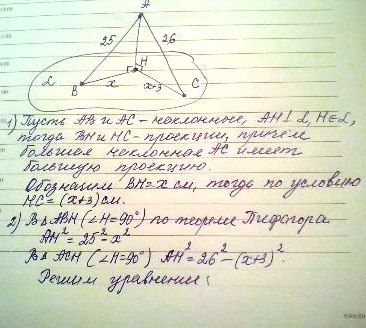 A
25
26
H
α
x
x+3
B
C
1) Пусть AB и AC - наклонные, AH⊥α, H∈α,
тогда BH и HC - проекции, причём
большая наклонная AC имеет
большую проекцию.
Обозначим BH=x см, тогда по условию
HC=(x+3)см.
2) В△ABH (∠H=90°) по теореме Пифагора
AH²=25²-x²
В△ACH (∠H=90°) AH²=26²-(x+3)².
Решим уравнение: